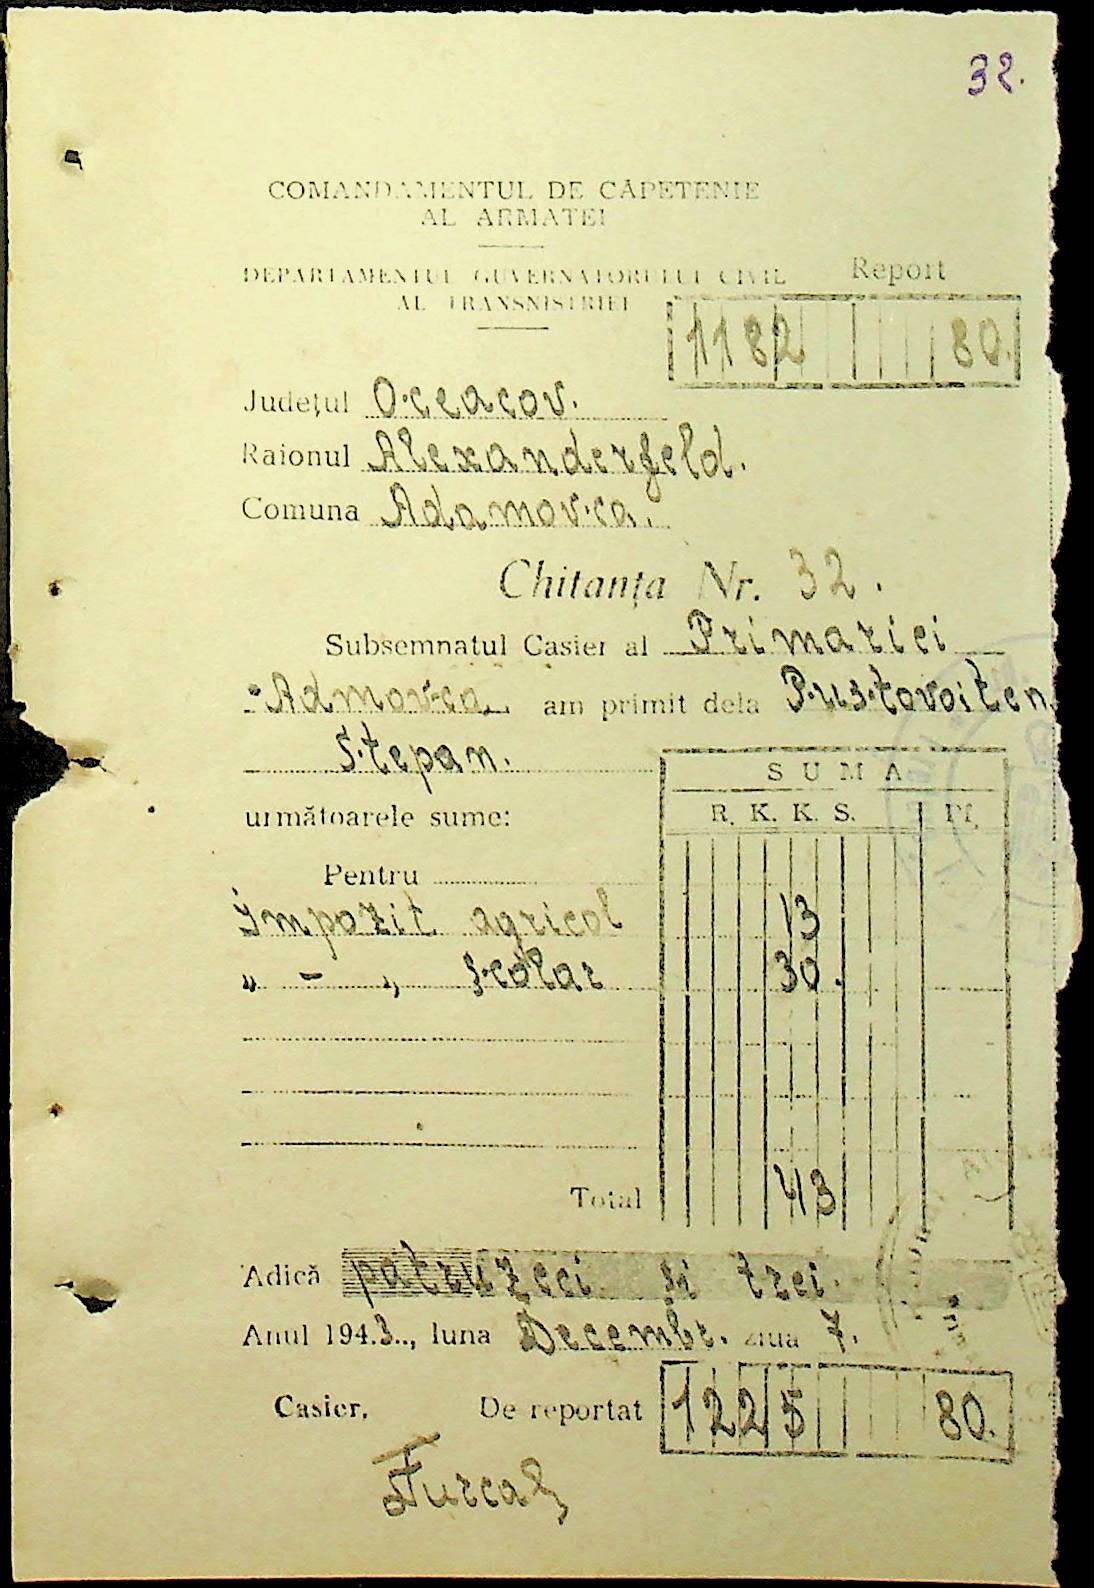 32.
COMANDAMENTUL DE CĂPETENIE
AL ARMATEI
DEPARTAMENTUL GUVERNATORULUI CIVIL
AL TRANSNISTRIEI
Report
1182 80.
Județul Oceacov.
Raionul Alexanderfeld.
Comuna Adamovca.
Chitanța Nr. 32.
Subsemnatul Casier al Primariei
Admovca am primit dela Pustovoiten
Stepan.
SUMA
următoarele sume:
R. K. K. S. Pf.
Pentru
Impozit agricol 13
" - " scolar 30.
Total 43
Adică patruzeci si trei.
Anul 1943.., luna Decembr. ziua 7.
Casier, De reportat 1225 80.